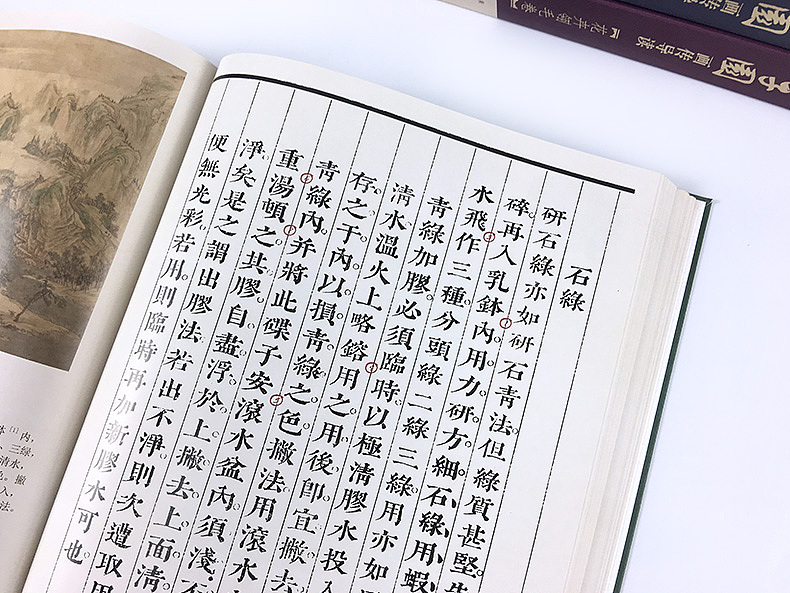 石綠
研石綠亦如研石青法。但綠質甚堅。
碎。再入乳鉢內。用力。研方。細。石、綠、用、蝦
水飛。作三種。分頭綠二綠三綠。用亦如
青綠加膠。必須臨時。以極清膠水投入
清水溫火上略鎔用之。用後即宜撇去。
存之于內。以損青綠之色。撇法用滾水
青綠內。并將此碟子安滾水盆內。須淺。
重湯頓之。其膠自盡浮於上。撇去上面清。
淨矣。是之謂出膠法。若出不淨。則次遭取用
便無光彩。若用。則臨時再加新膠水可也。
[1]内，
三绿，
清水，
。撇
入，
法。
园 画传导读
子园 画传导读【花卉翎毛卷】